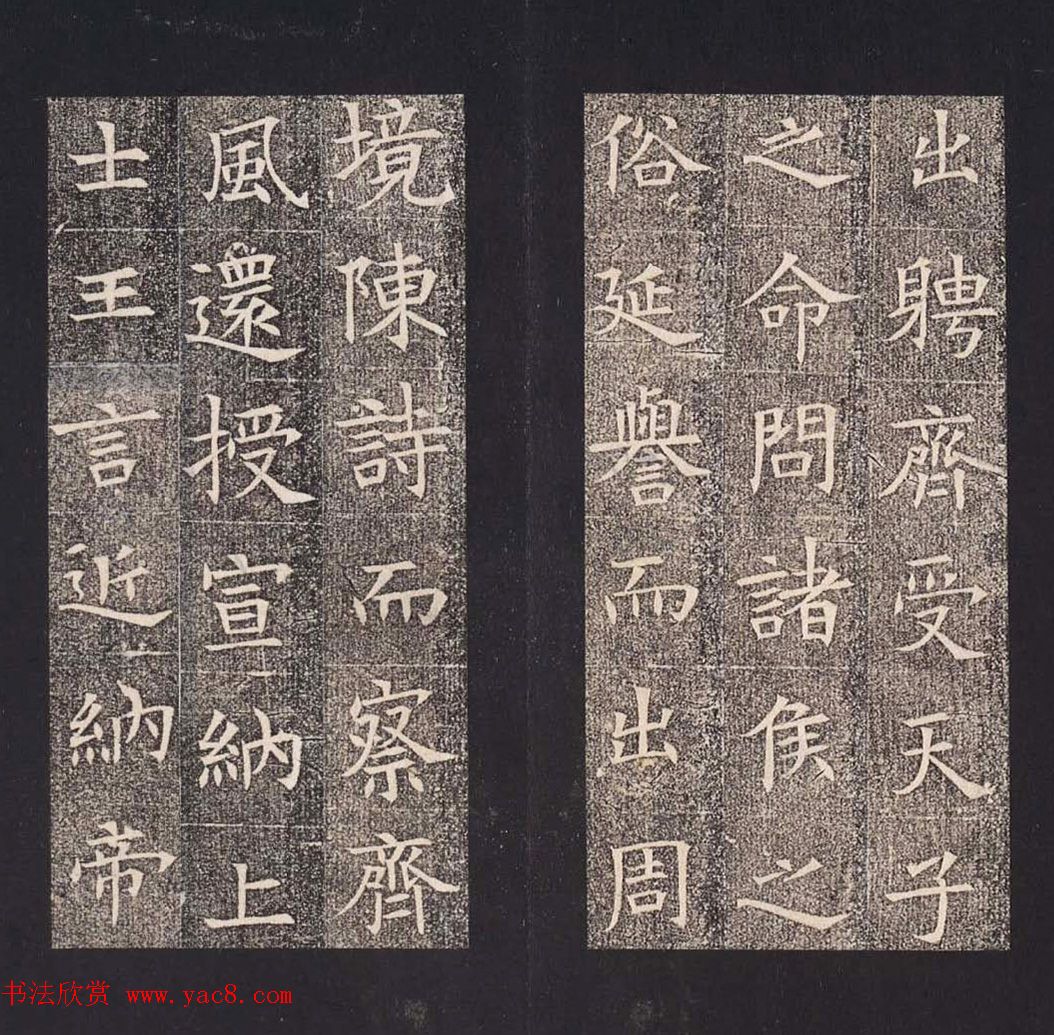 出聘齊受天子
之命問諸侯之
俗延譽而出周
境陳詩而察齊
風還授宣納上
士王言近納帝
书法欣赏 www.yac8.com